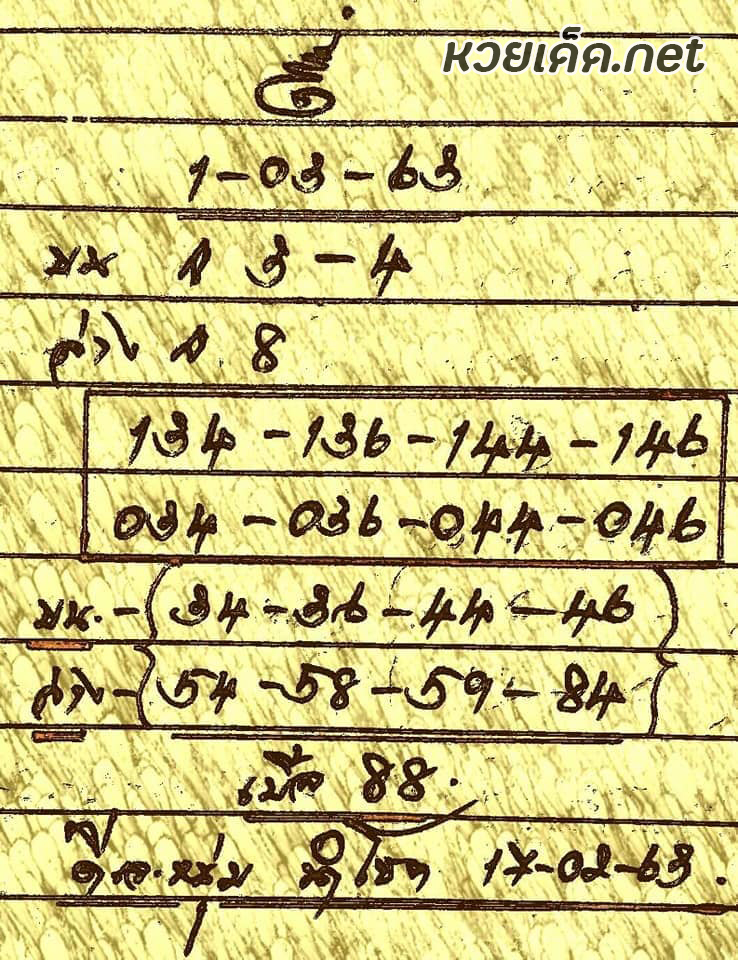 หวยเด็ด.net
1-03-63
บน 3-4
ล่าง 8
134-136-144-146
034-036-044-046
บน.-(34-36-44-46)
ล่าง-{54-58-59-84}
88.
นำโชค 17-02-63.